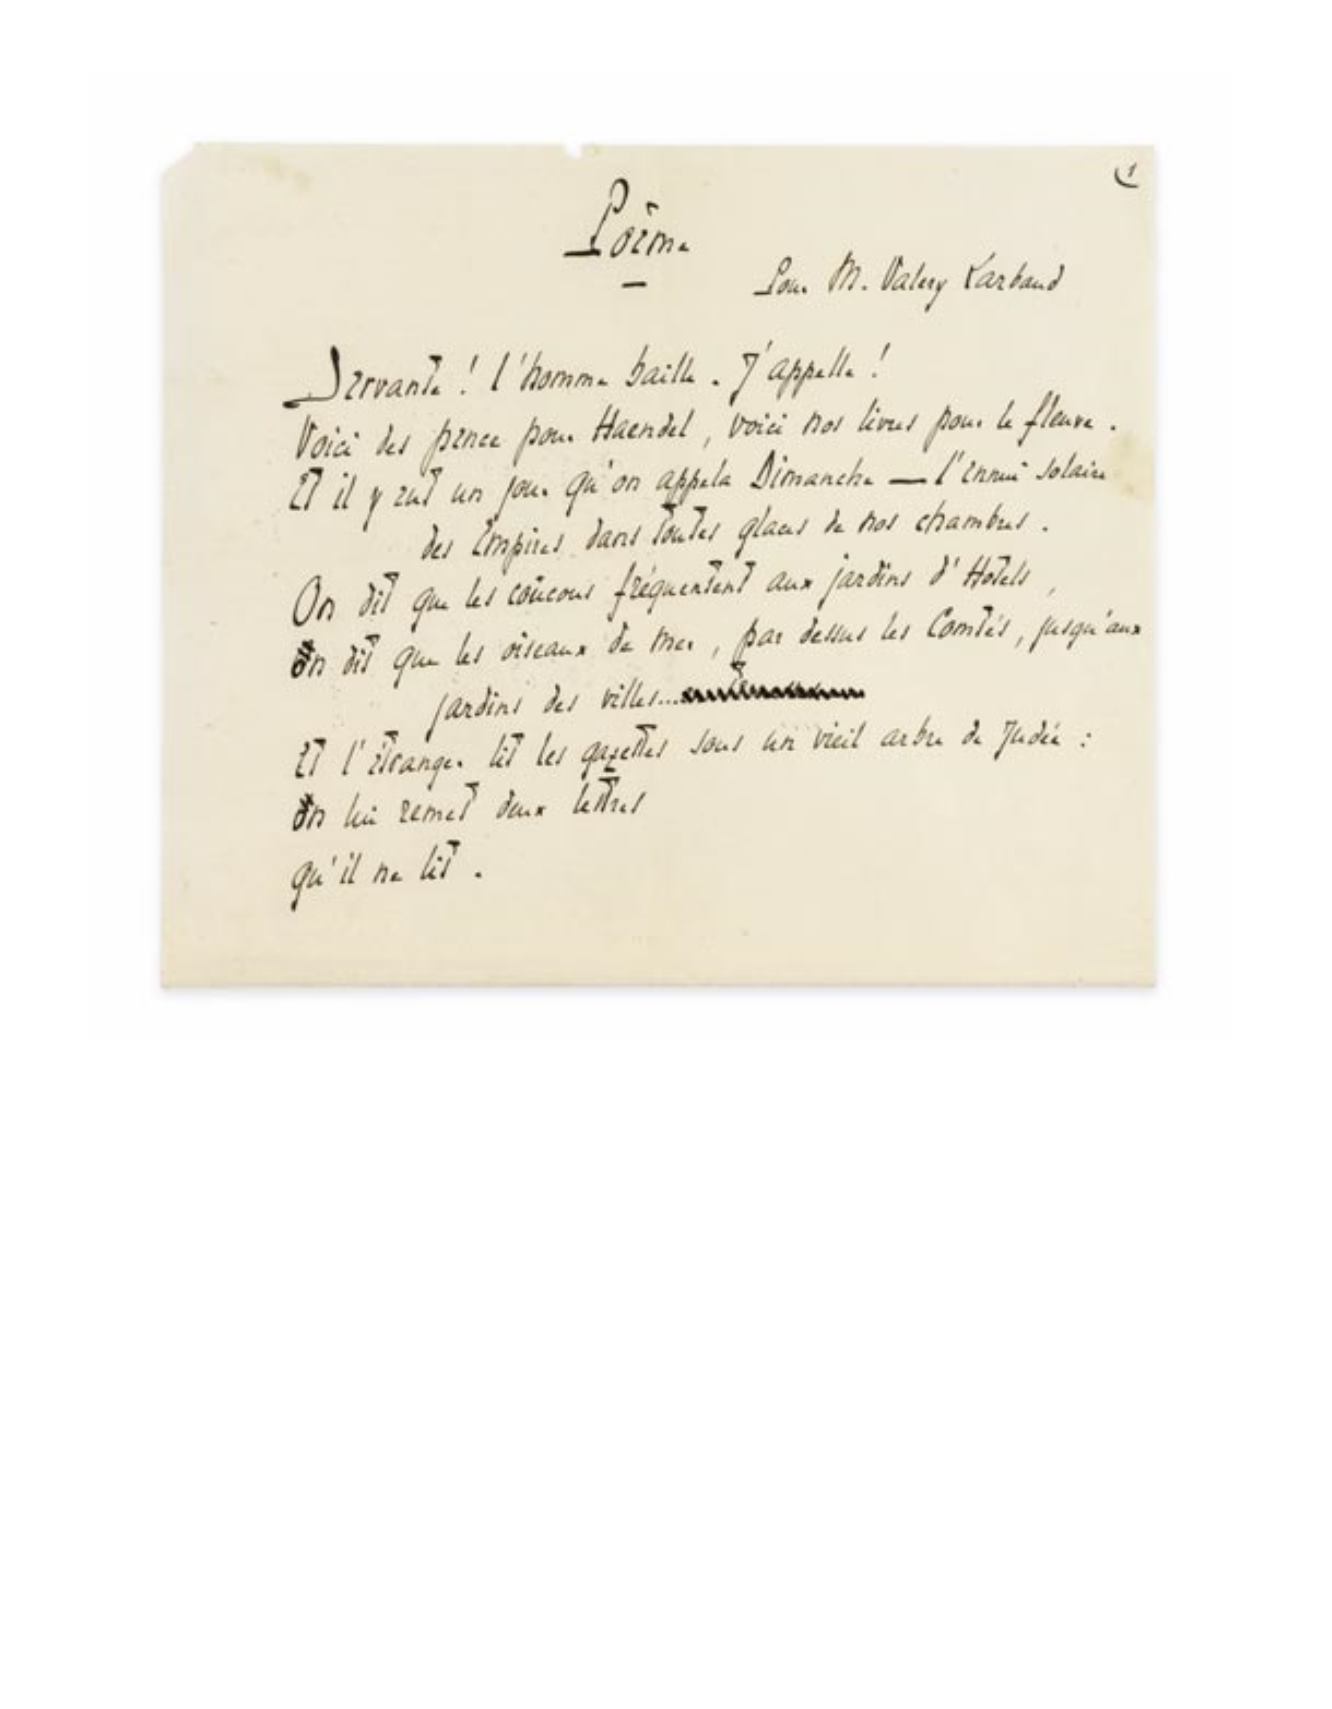 1
Poème
Pour M. Valery Larbaud
Servante ! l'homme baille. J'appelle !
Voici des pence pour Haendel, voici nos livres pour le fleuve.
Et il y eut un jour qu'on appela Dimanche — l'ennui solaire
des Empires dans toutes glaces de nos chambres.
On dit que les coucous fréquentent aux jardins d'Hotels,
On dit que les oiseaux de mer, par dessus les Comtés, jusqu'aux
jardins des villes...
Et l'étranger lit les gazettes sous un vieil arbre de Judée :
On lui remet deux lettres
qu'il ne lit.